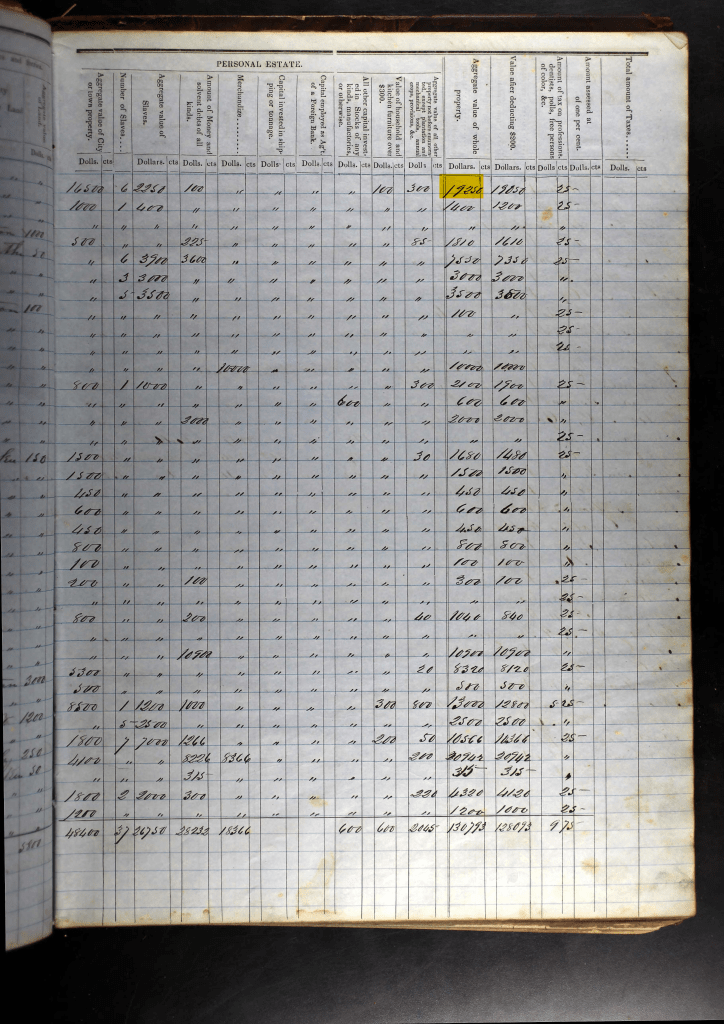 PERSONAL ESTATE.
Aggregate value of City or town property.
Number of Slaves
Aggregate value of Slaves.
Amount of Money and solvent debts of all kinds.
Merchandize
Capital invested in shipping or tonnage.
Capital employed as Ag't of a Foreign Bank.
All other capital invested in Stocks of any kinds, manufactories, or otherwise.
Value of household and kitchen furniture over $300.
Aggregate value of all other property not before enumerated, except plantation and mechanical tools, annual crops, provisions, &c.
Aggregate value of whole property.
Value after deducting $200.
Amount of tax on professions, dentists, polls, free persons of color, &c.
Amount assessed at of one per cent.
Total amount of Taxes
Dolls. Dollars. cts Dolls. cts Dolls. cts Dolls. cts Dolls. cts Dolls. cts Dolls. cts Dolls. cts Dollars. cts Dollars. cts Dolls cts Dolls. cts Dolls. cts
16500 6 2250 100 " " " " 100 300 19250 19050 25
1000 1 400 " " " " " " " 1400 1200 25
" " " " " " " " " " " " "
500 " " 225 " " " " " 85 1810 1610 25
" 6 3900 3600 " " " " " " 7550 7350 25
" 3 3000 " " " " " " " 3000 3000 "
" 5 3500 " " " " " " " 3500 3500 "
" " " " " " " " " " 100 " 25
" " " " " " " " " " " " 25
" " " " " " " " " " " " 25
" " " " 10000 " " " " " 10000 10000
800 1 1000 " " " " " " 300 2100 1900 25
" " " " " " " 600 " " 600 600 "
" " " 2000 " " " " " " 2000 2000 "
" " " " " " " " " " " " 25
1500 " " " " " " " " 30 1680 1480 25
1500 " " " " " " " " " 1500 1500 "
450 " " " " " " " " " 450 450 "
600 " " " " " " " " " 600 600 "
450 " " " " " " " " " 450 450 "
800 " " " " " " " " " 800 800 "
100 " " " " " " " " " 100 100 "
200 " " 100 " " " " " " 300 100 25
" " " " " " " " " " " " 25
800 " " 200 " " " " " 40 1040 840 25
" " " " " " " " " " " " 25
" " " 10900 " " " " " " 10900 10900 "
5300 " " " " " " " " 20 8320 8120 25
500 " " " " " " " " " 500 500 "
8500 1 1200 1000 " " " " 300 800 13000 12800 5 25
" 5 2500 " " " " " " " 2500 2500 "
1800 7 7000 1266 " " " " 200 50 10566 10366 25
4100 " " 8226 8366 " " " " 200 20942 20942 "
" " " 315 " " " " " " 315 315 "
1800 2 2000 300 " " " " " 220 4320 4120 25
1200 " " " " " " " " " 1200 1000 25
48400 37 26750 28232 18366 600 600 2045 130793 128093 9 75